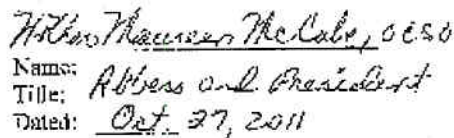 Mother Maureen McCabe, OCSO
Name:
Title: Abbess and President
Dated: Oct. 27, 2011